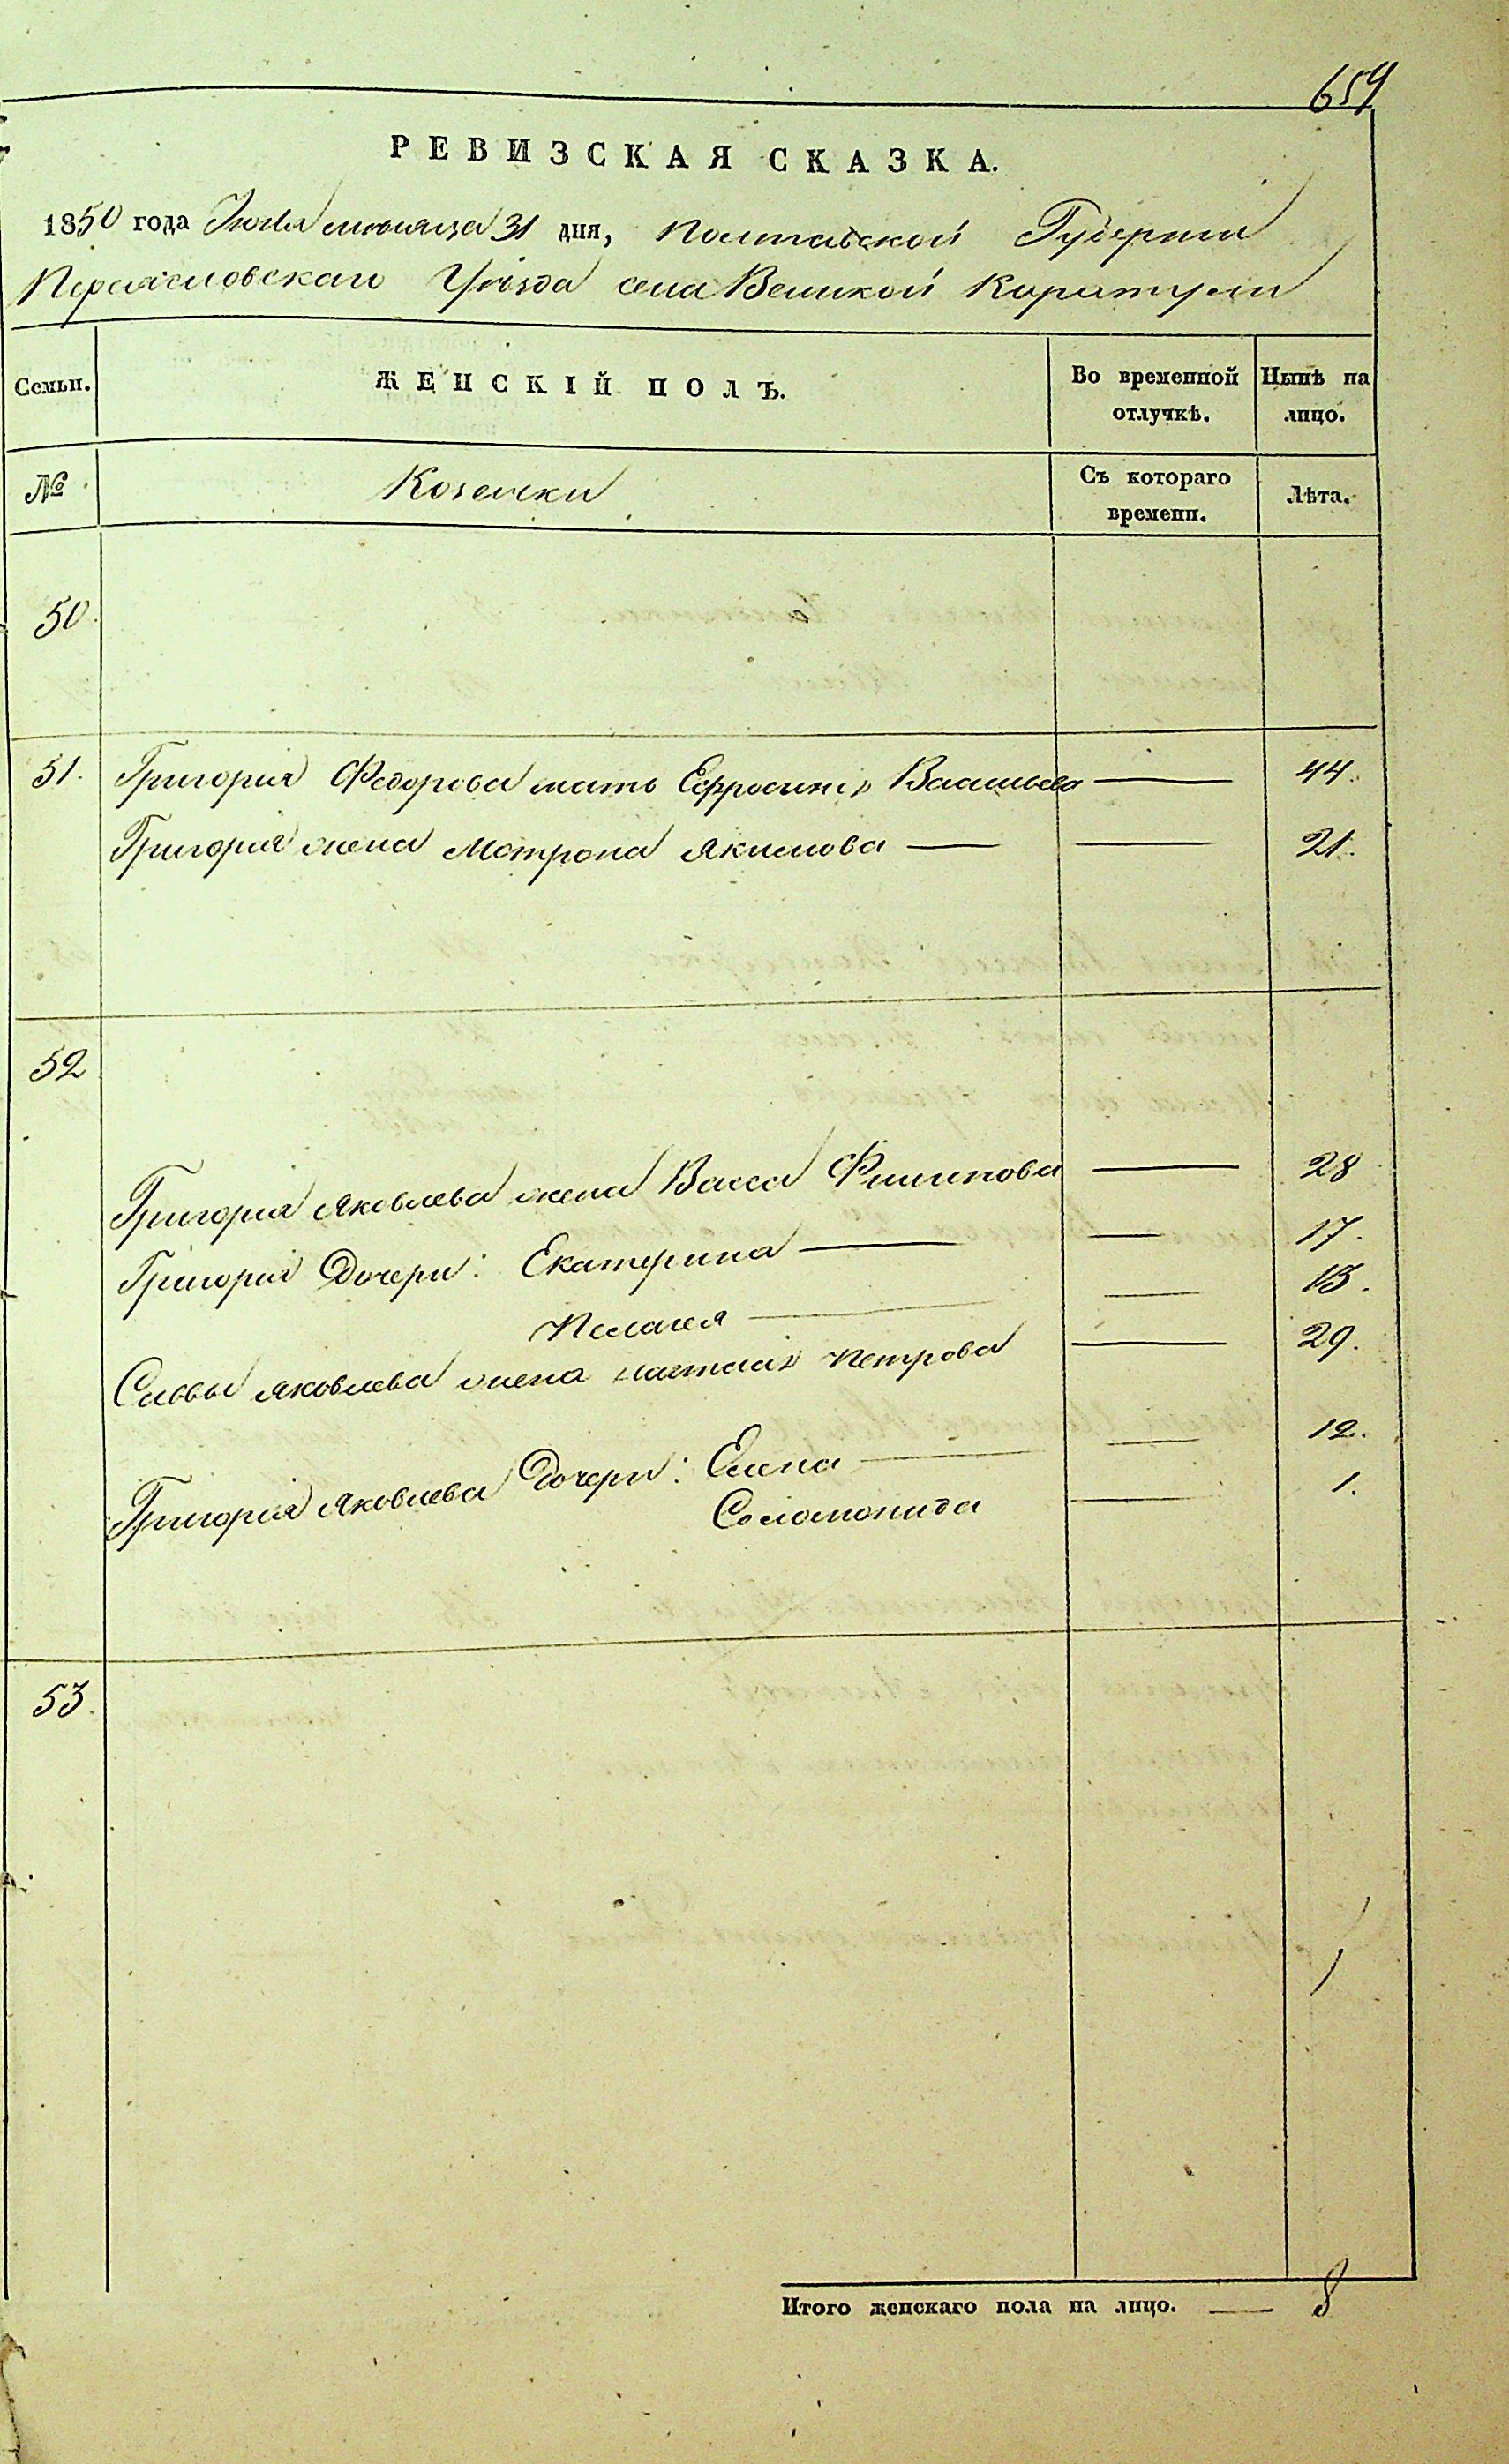 659
РЕВИЗСКАЯ СКАЗКА.
1850 года Июля месяца 31 дня, Полтавской Губернии
Переяславскаго Уѣзда села Великой Каратули
Семьи. ЖЕНСКІЙ ПОЛЪ. Во временной отлучкѣ. Нынѣ на лицо.
№ Козачки Съ котораго времени. Лѣта.
50.
51. Григорія Федорова мать Ефросинія Васильева — 44.
Григорія жена Мотрона Якимова — — 21.
52
Григорія Яковлева жена Васса Филипова — 28
Григорія Дочери: Екатерина — — 17.
Пелагея — — 15.
Саввы Яковлева жена Наталія Петрова — 29.
Григорія Яковлева Дочери: Елена — — 12.
Соломонида — 1.
53.
Итого женскаго пола на лицо. — 8